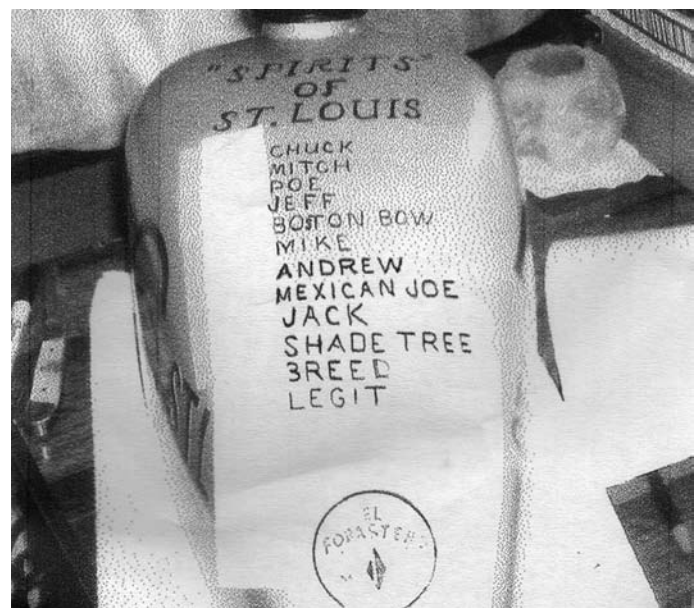 "SPIRITS"
OF
ST. LOUIS
CHUCK
MITCH
POE
JEFF
BOSTON BOW
MIKE
ANDREW
MEXICAN JOE
JACK
SHADE TREE
3REED
LEGIT
EL
FORASTERO
M